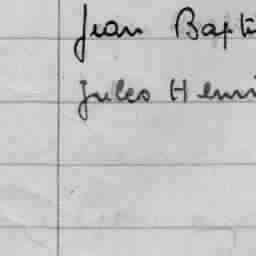 Jean Bapti
Jules Henri